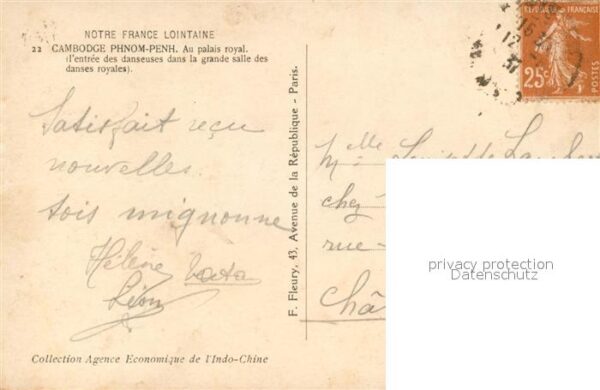 NOTRE FRANCE LOINTAINE
22 CAMBODGE PHNOM-PENH. Au palais royal.
(l'entrée des danseuses dans la grande salle des
danses royales).
Satisfait reçu
nouvelles
sois mignonne
Hélène
Léon
Collection Agence Economique de l'Indo-Chine
F. Fleury, 43, Avenue de la République - Paris.
REPUBLIQUE FRANÇAISE
25c
POSTES
Mlle
chez
rue
Châ
privacy protection
Datenschutz